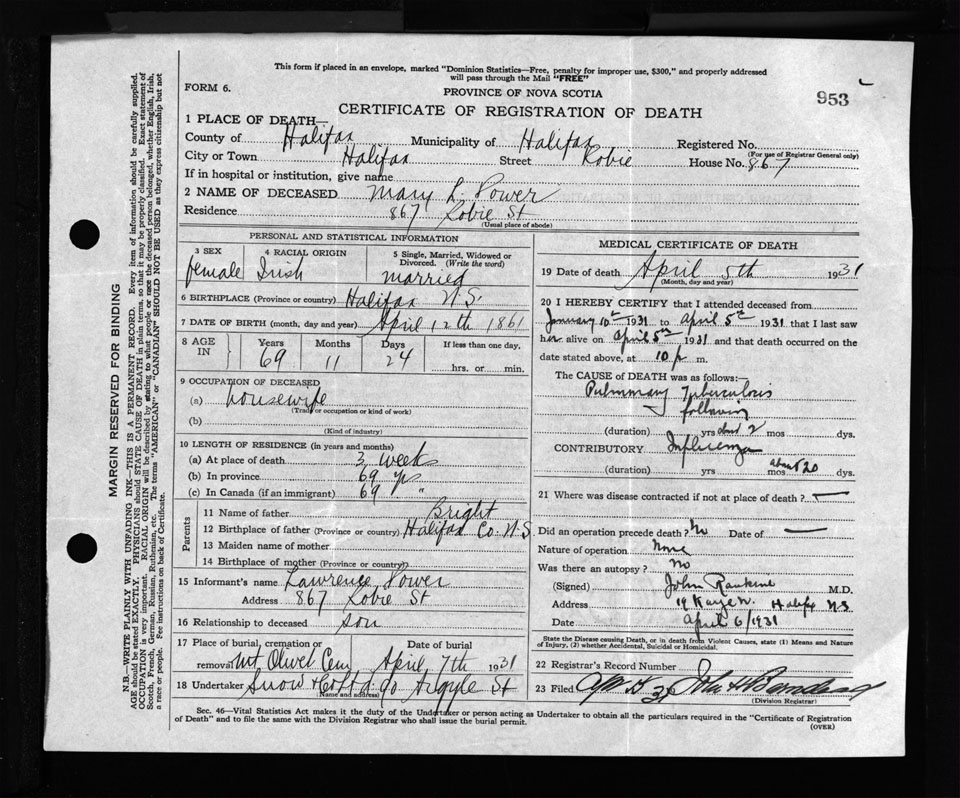 This form if placed in an envelope, marked "Dominion Statistics—Free, penalty for improper use, $300," and properly addressed
will pass through the Mail "FREE"
FORM 6.
PROVINCE OF NOVA SCOTIA
953
CERTIFICATE OF REGISTRATION OF DEATH
1 PLACE OF DEATH—
County of Halifax Municipality of Halifax Registered No.
(For use of Registrar General only)
City or Town Halifax Street Robie House No. 867
If in hospital or institution, give name
2 NAME OF DECEASED Mary L. Power
Residence 867 Robie St
(Usual place of abode)
PERSONAL AND STATISTICAL INFORMATION
3 SEX 4 RACIAL ORIGIN 5 Single, Married, Widowed or
Divorced. (Write the word)
female Irish married
6 BIRTHPLACE (Province or country) Halifax N.S.
7 DATE OF BIRTH (month, day and year) April 12th 1861
8 AGE IN Years Months Days If less than one day,
69 11 24 hrs. or min.
9 OCCUPATION OF DECEASED
(a) housewife
(Trade or occupation or kind of work)
(b)
(Kind of industry)
10 LENGTH OF RESIDENCE (in years and months)
(a) At place of death 3 weeks
(b) In province 69 yrs
(c) In Canada (if an immigrant) 69 "
Parents
11 Name of father Bright
12 Birthplace of father (Province or country) Halifax Co. N.S
13 Maiden name of mother
14 Birthplace of mother (Province or country)
15 Informant's name Lawrence Power
Address 867 Robie St
16 Relationship to deceased son
17 Place of burial, cremation or Date of burial
removal Mt Olivet Cem April 7th 1931
18 Undertaker Snow & Co Ltd 90 Argyle St
(Name and address)
MEDICAL CERTIFICATE OF DEATH
19 Date of death April 5th 1931
(Month, day and year)
20 I HEREBY CERTIFY that I attended deceased from
January 10th 1931 to April 5th 1931 that I last saw
her alive on April 5th 1931 and that death occurred on the
date stated above, at 10 p m.
The CAUSE OF DEATH was as follows:—
Pulmonary Tuberculosis
following
(duration) yrs about 2 mos dys.
CONTRIBUTORY Influenza
(duration) yrs mos about 20 dys.
21 Where was disease contracted if not at place of death? —
Did an operation precede death? No Date of —
Nature of operation None
Was there an autopsy? No
(Signed) John Rankine M.D.
Address 19 Kaye St. Halifax N.S.
Date April 6/1931
State the Disease causing Death, or in death from Violent Causes, state (1) Means and Nature
of Injury, (2) whether Accidental, Suicidal or Homicidal.
22 Registrar's Record Number
23 Filed
(Division Registrar)
Sec. 46—Vital Statistics Act makes it the duty of the Undertaker or person acting as Undertaker to obtain all the particulars required in the "Certificate of Registration
of Death" and to file the same with the Division Registrar who shall issue the burial permit.
(OVER)
MARGIN RESERVED FOR BINDING
N.B.—WRITE PLAINLY WITH UNFADING INK—THIS IS A PERMANENT RECORD. Every item of information should be carefully supplied.
AGE should be stated EXACTLY. PHYSICIANS should STATE CAUSE OF DEATH in plain terms, so that it may be properly classified. Exact statement of
OCCUPATION is very important. RACIAL ORIGIN will be described by stating to what people or race the deceased person belonged, whether English, Irish,
Scotch, French, German, Russian, Ruthenian, etc. The terms "AMERICAN" or "CANADIAN" SHOULD NOT BE USED as they express citizenship but not
a race or people. See instructions on back of Certificate.